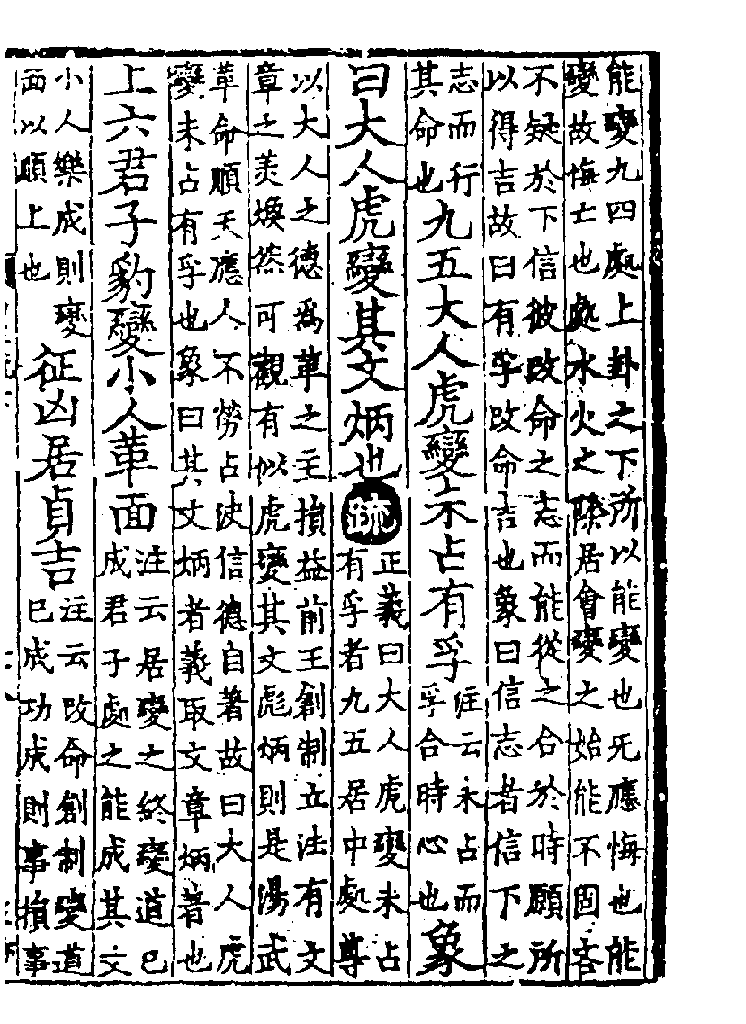 能變九四處上卦之下所以能變也无應悔也能
變故悔亡也處水火之際居會變之始能不固吝
不疑於下信彼改命之志而能從之合於時願所
以得吉故曰有孚改命吉也象曰信志者信下之
志而行
其命也
九五大人虎變未占有孚
注云未占而
孚合時心也
象
曰大人虎變其文炳也
疏
正義曰大人虎變未占
有孚者九五居中處尊
以大人之德爲革之主損益前王創制立法有文
章之美煥然可觀有似虎變其文彪炳則是湯武
革命順天應人不勞占決信德自著故曰大人虎
變未占有孚也象曰其文炳者義取文章炳著也
上六君子豹變小人革面
注云居變之終變道已
成君子處之能成其文
小人樂成則變
面以順上也
征凶居貞吉
注云改命創制變道
已成功成則事損事